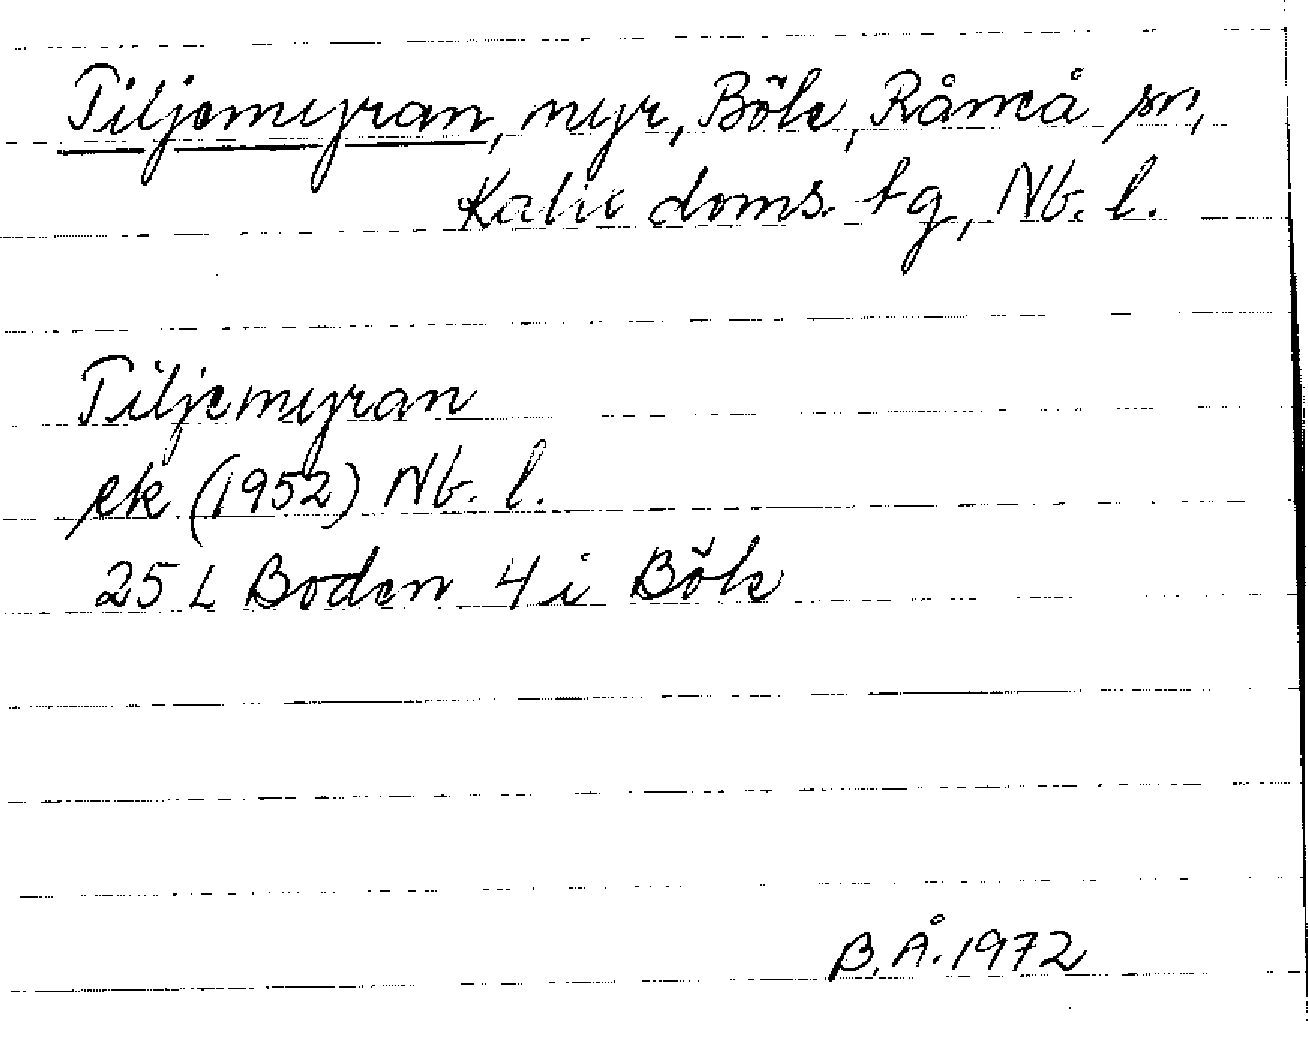 Tiljemyran, myr, Böle, Råneå sn,
Kalix doms. tg, Nb. l.
Tiljemyran
ek (1952) Nb. l.
25 L Boden 4 i Böle
B.Å. 1972